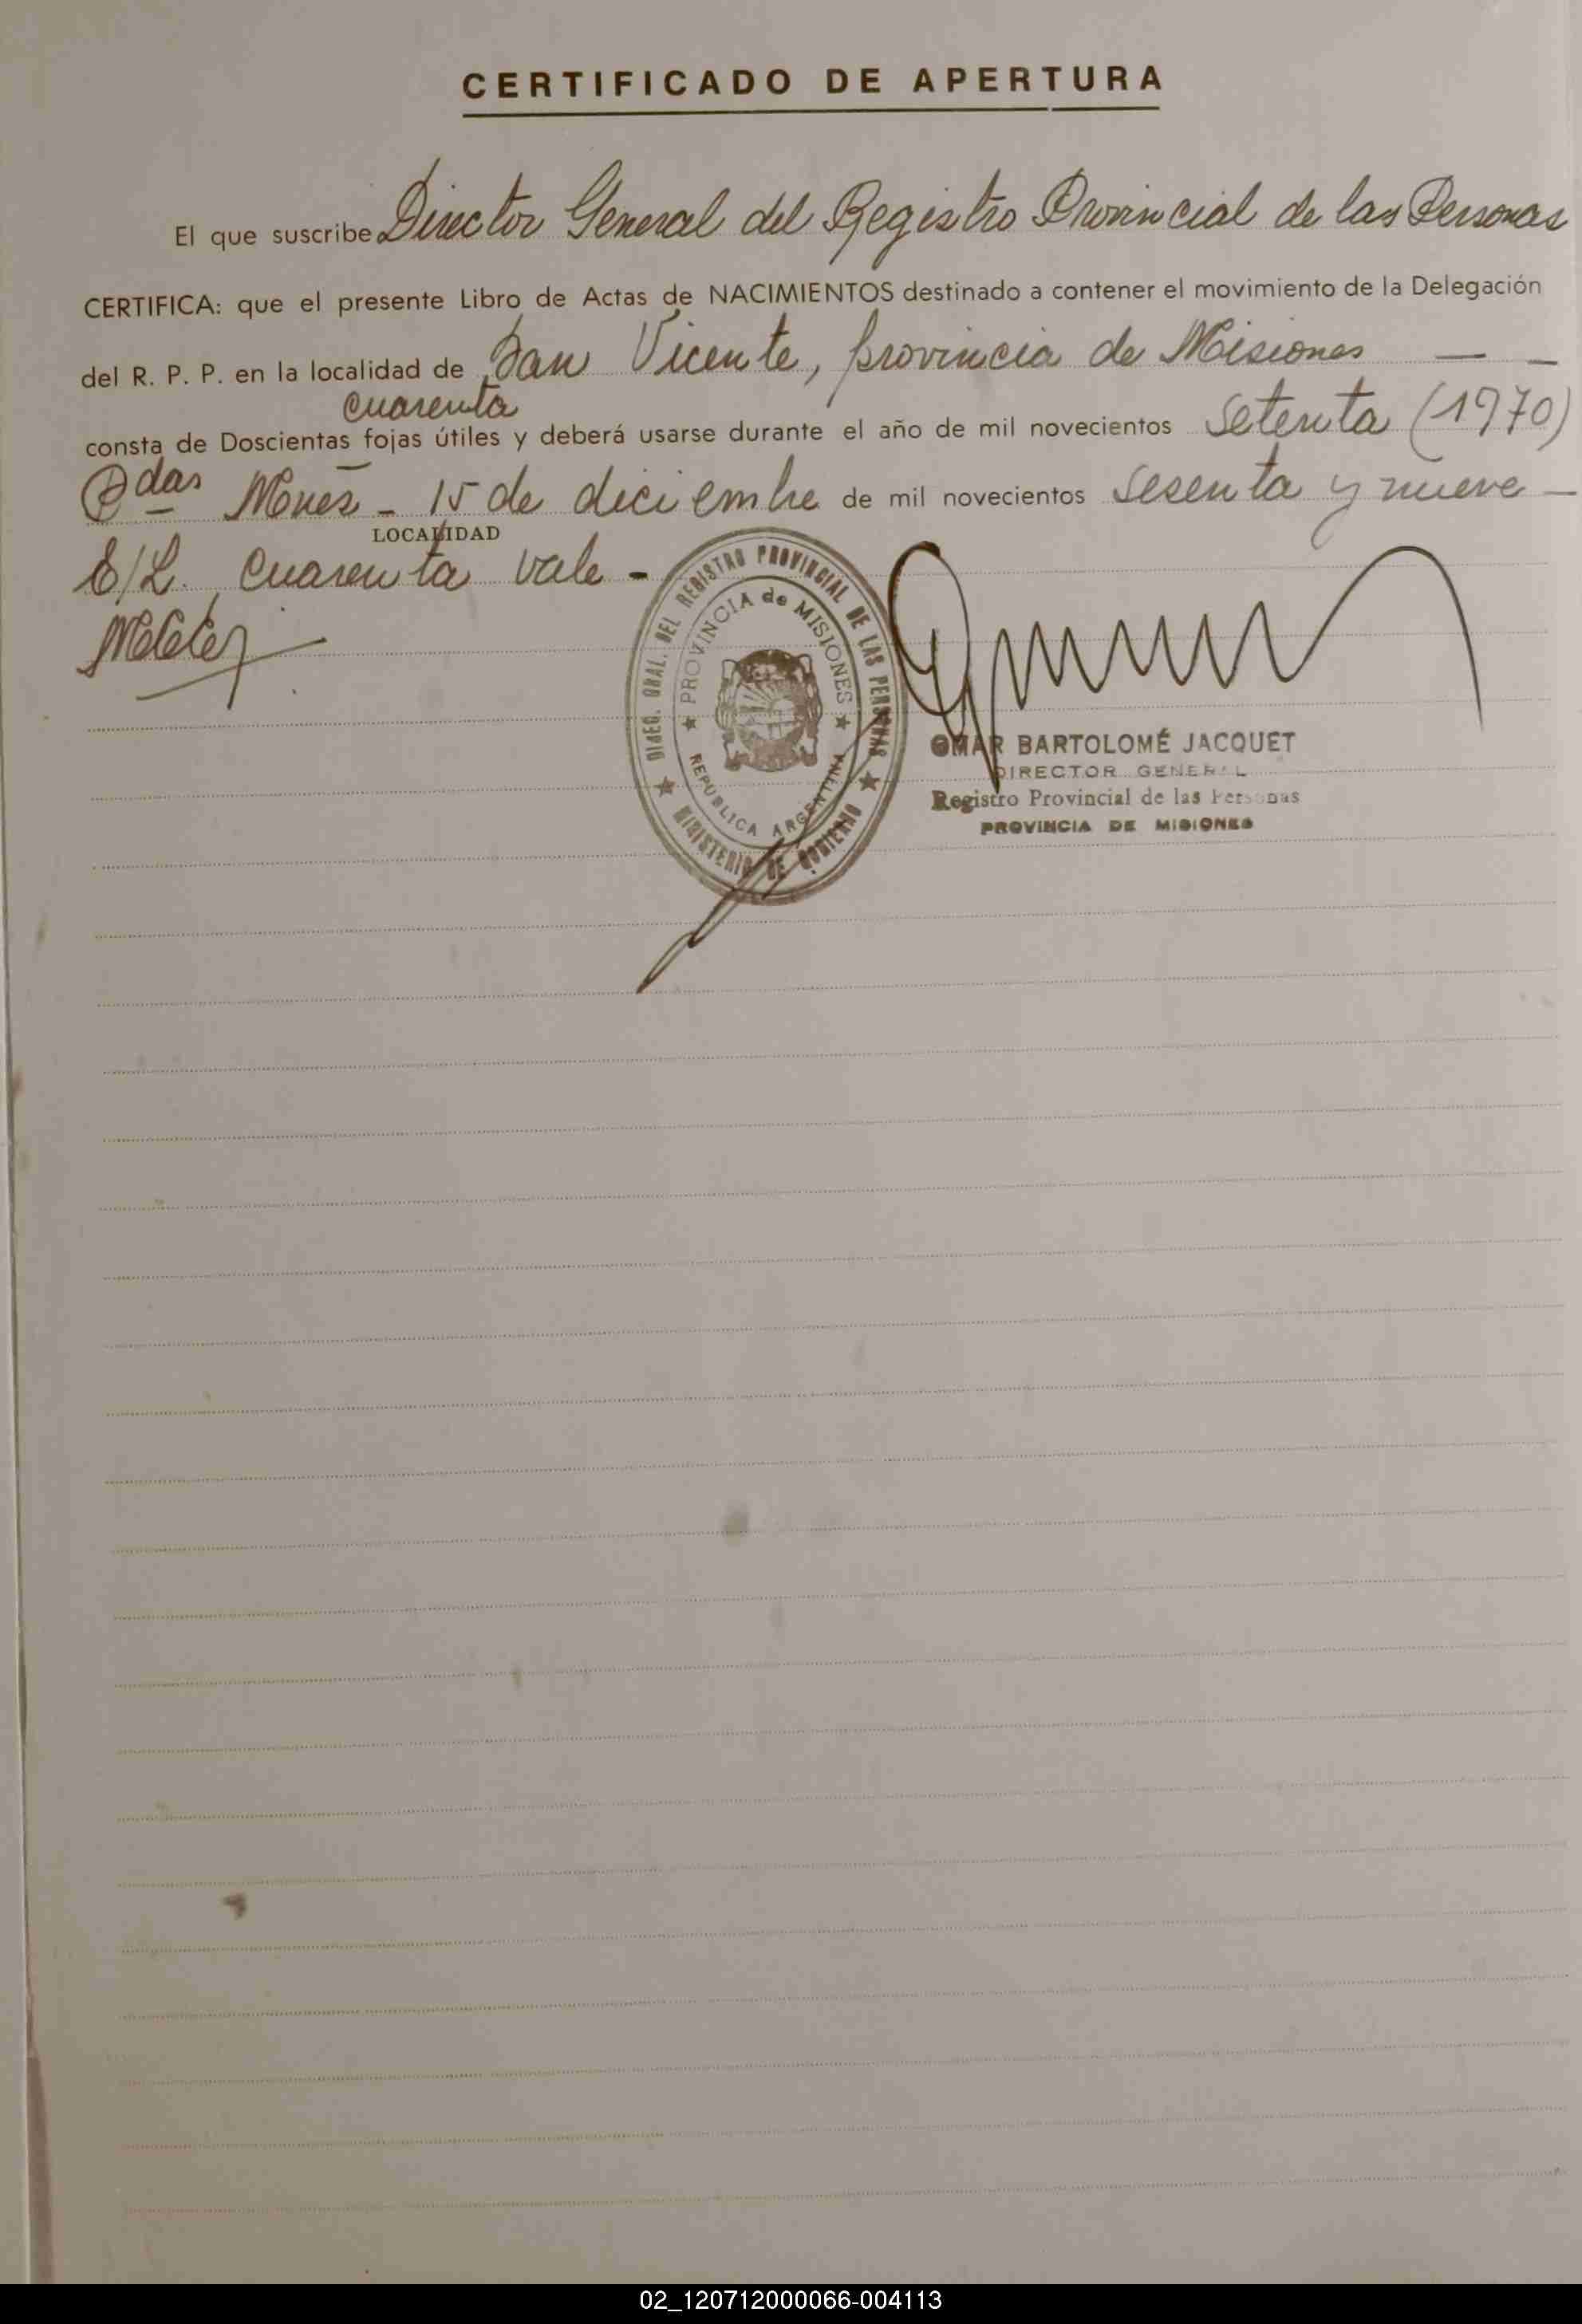 CERTIFICADO DE APERTURA
El que suscribe Director General del Registro Provincial de las Personas
CERTIFICA: que el presente Libro de Actas de NACIMIENTOS destinado a contener el movimiento de la Delegación
del R. P. P. en la localidad de San Vicente, provincia de Misiones — —
cuarenta
consta de Doscientas fojas útiles y deberá usarse durante el año de mil novecientos setenta (1970)
Pdas Mnes - 15 de diciembre de mil novecientos sesenta y nueve —
LOCALIDAD
E/L. cuarenta vale -
DIREC. GRAL. DEL REGISTRO PROVINCIAL DE LAS PERSONAS
PROVINCIA de MISIONES
REPUBLICA ARGENTINA
MINISTERIO DE GOBIERNO
OMAR BARTOLOMÉ JACQUET
DIRECTOR GENERAL
Registro Provincial de las Personas
PROVINCIA DE MISIONES
02_120712000066-004113